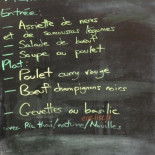 Entrée:
- Assiette de nems
et de samoussas légumes
- Salade de bœuf
- Soupe au poulet
Plat:
- Poulet curry rouge
- Bœuf champignons noirs
- Crevettes au basilic
avec Riz thaï/nature/Nouilles